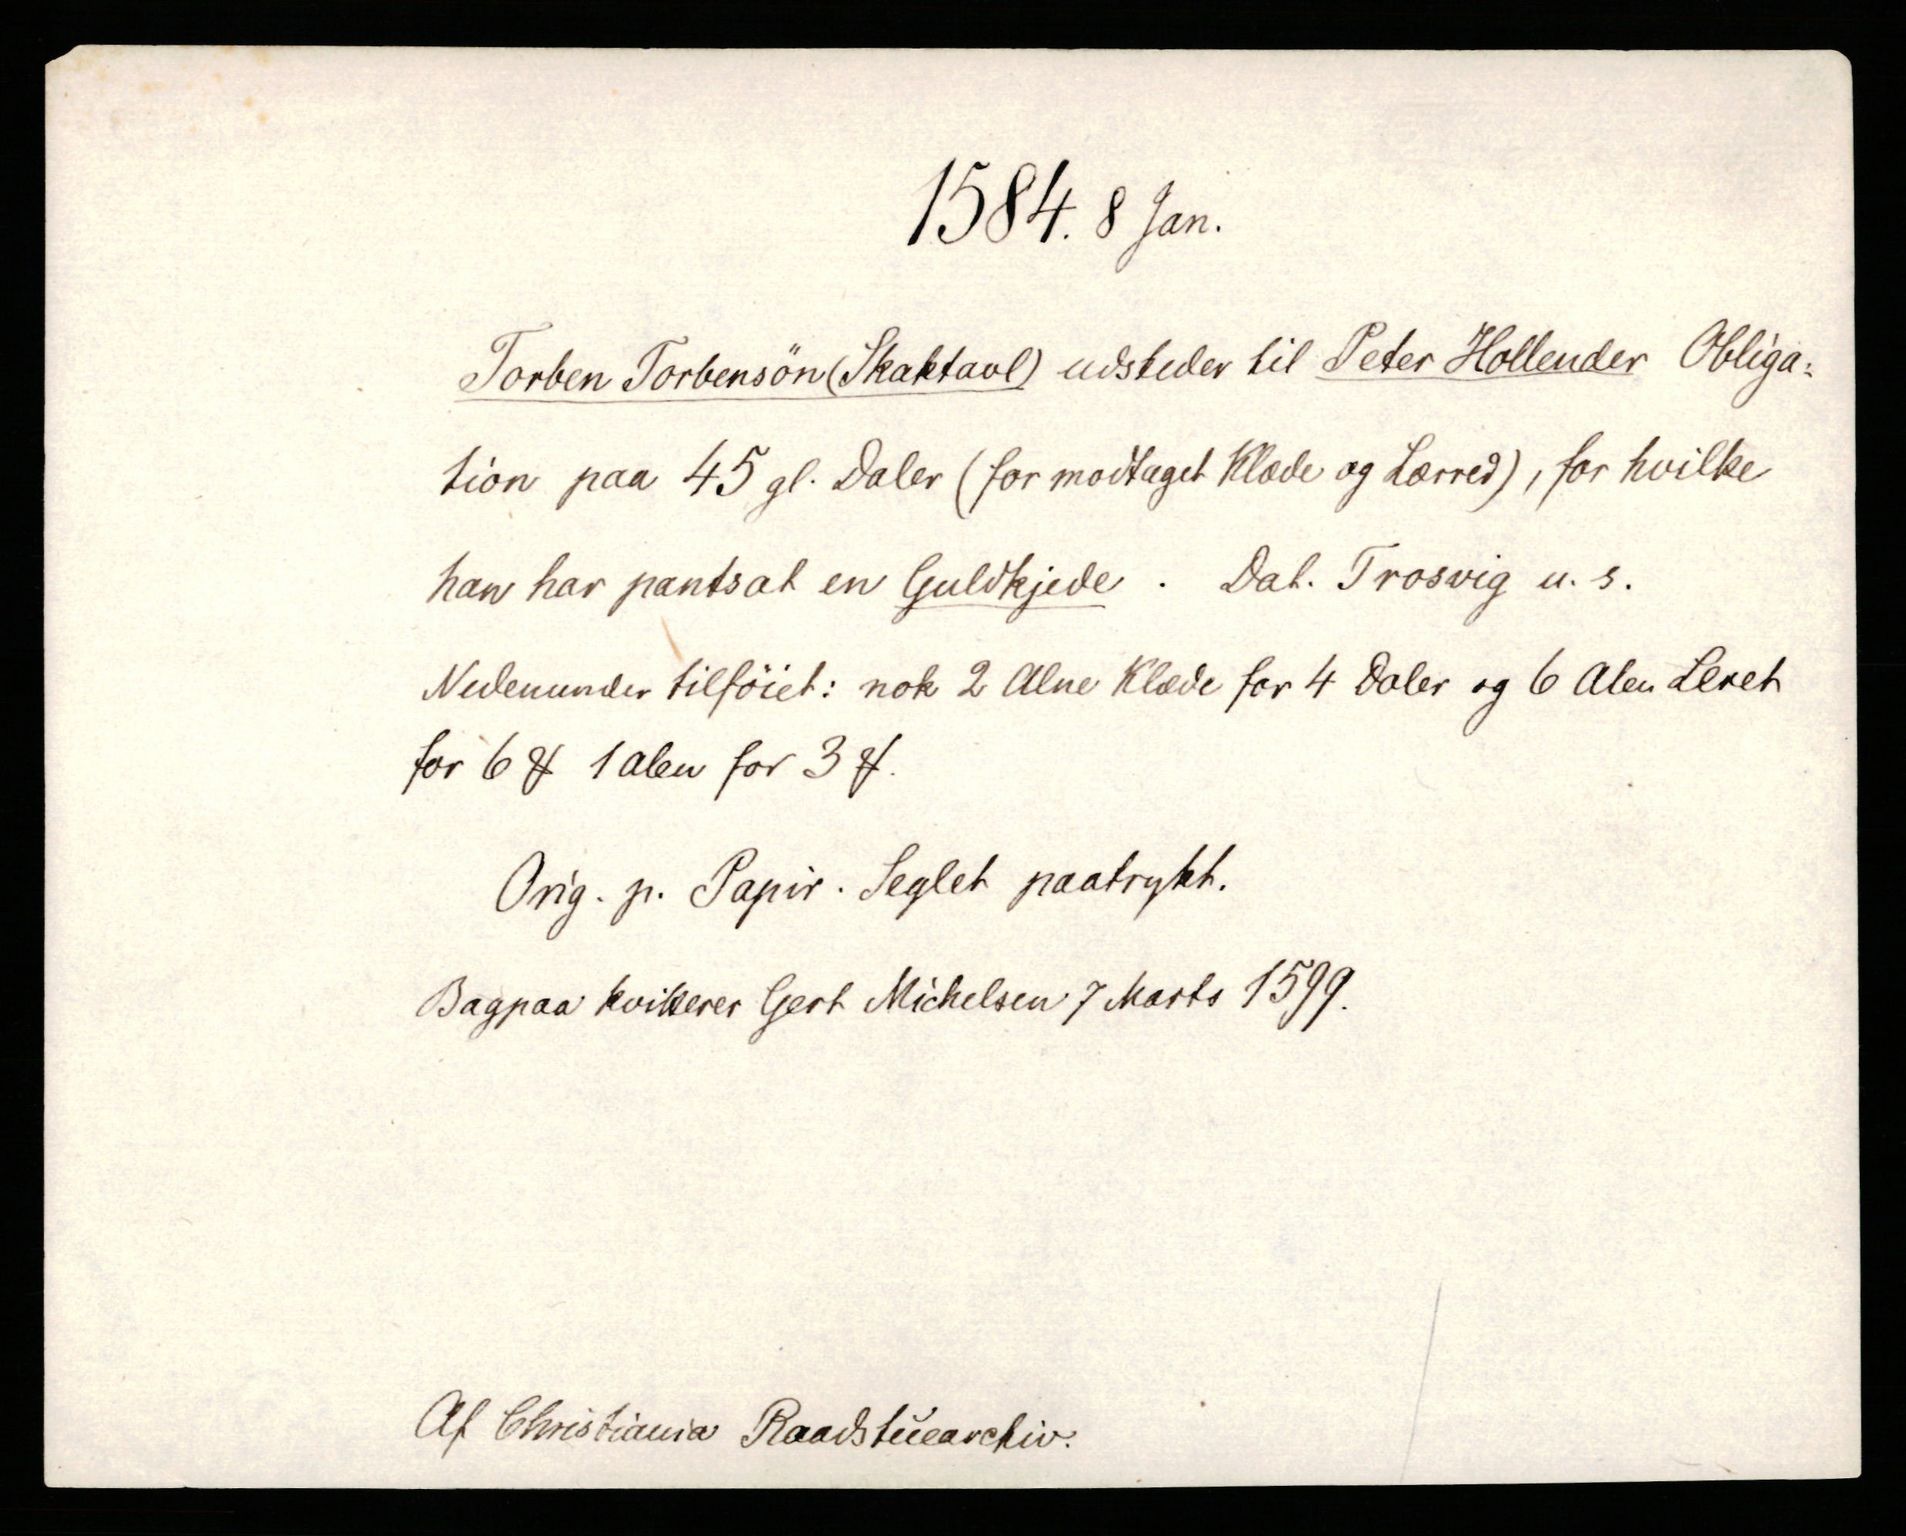 1584. 8 Jan.
Torben Torbensön (Skaktavl) udsteder til Peter Hollender Obliga-
tion paa 45 gl. Daler (for modtaget Klæde og Lærred), for hvilke
han har pantsat en Guldkjede. Dat. Trosvig u. s.
Nedenunder tilföiet: nok 2 Alne Klæde for 4 Daler og 6 Alen Leret
for 6 ꝸ 1 alen for 3 ꝸ.
Orig. p. Papir. Seglet paatrykt.
Bagpaa kvitterer Gert Michelsen 7 Marts 1599.
Af Christiania Raadstuearchiv.